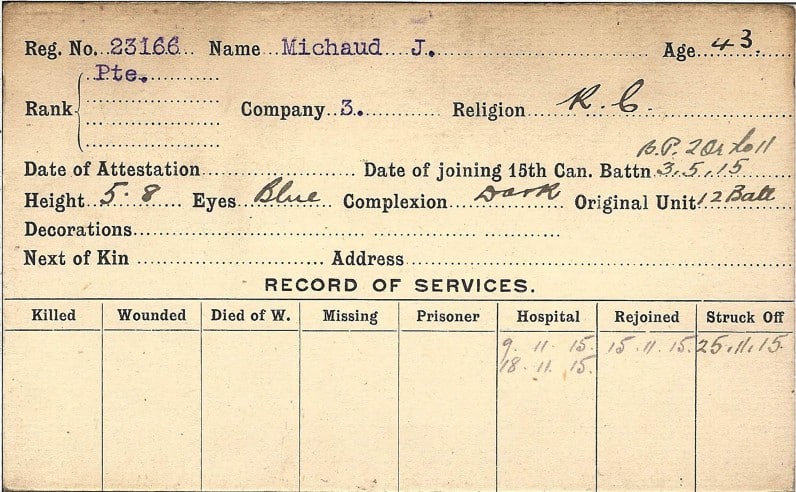 Reg. No. 23166 Name Michaud J. Age 43.
Pte.
Rank Company 3. Religion R. C.
B.P. 2 Or
Date of Attestation Date of joining 15th Can. Battn 3.5.15
Height 5.8 Eyes Blue Complexion Dark Original Unit 12 Batt
Decorations
Next of Kin Address
RECORD OF SERVICES.
Killed Wounded Died of W. Missing Prisoner Hospital Rejoined Struck Off
9 11 15. 15.11.15. 25.11.15.
18.11.15.